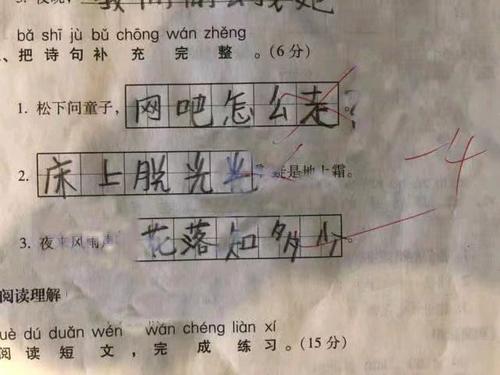 bǎ shī jù bǔ chōng wán zhěng
、把诗句补充完整。(6分)
1. 松下问童子，网吧怎么走？
2. 床上脱光光，是地上霜。
3. 夜来风雨声 花落知多少。
-4
阅读理解
uè dú duǎn wén wán chéng liàn xí
阅读短文，完成练习。(15分)